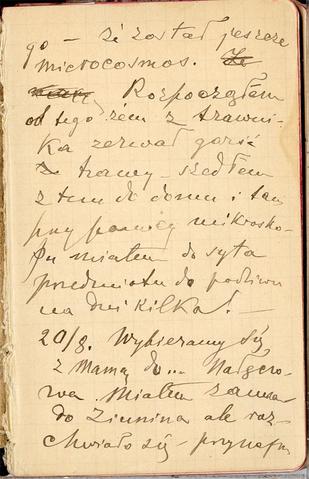 go — że został jeszcze
microcosmos. Że
Rozpocząłem
od tego żem z trawni-
ka zerwał garść
trawy — szedłem
z tem do domu i tam
przy pomocy mikrosko-
pu miałem do syta
przedmiotu do podziwu
na dni kilka! —
20/8. Wybieramy się
z Mamą do...
wa. Miałem zamiar
do Zimnina ale roz-
chwiało się — przynajm